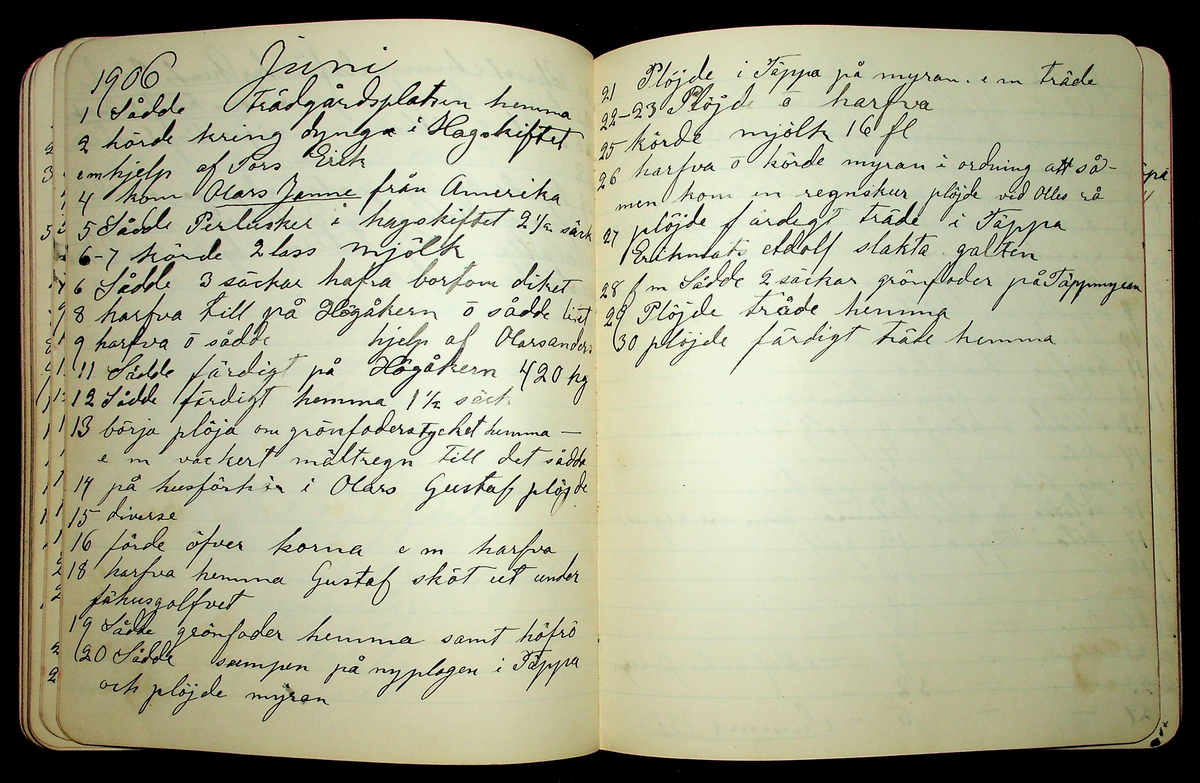 1906 Juni
1 Sådde Trädgårdsplatsen hemma
2 körde kring dynga i Hagskiftet
em hjelp af Pors Erik
4 kom Olars Janne från Amerika
5 Sådde Perlusker i hagskiftet 2 1/2 säck
6-7 körde 2 lass mjölk
6 Sådde 3 säckar hafra bortom diket
8 harfva till på Högåkern ö sådde litet
9 harfva ö sådde hjelp af Olarsanders
11 Sådde färdigt på Högåkern 420 kg
12 Sådde färdigt hemma 1 1/2 säck
13 börja plöja om grönfoderstycket hemma —
e m vackert måltregn till det sådda
14 på husförhör i Olars Gustaf plöjde
15 diverse
16 förde öfver korna e m harfva
18 harfva hemma Gustaf sköt ut under
fähusgolfvet
19 Sådde grönfoder hemma samt höfrö
20 Sådde sumpen på nyplogen i Täppa
och plöjde myran
21 Plöjde i Täppa på myran. e m träde
22-23 Plöjde ö harfva
25 körde mjölk 16 fl
26 harfva ö körde myran i ordning att så-
men kom en regnskur plöjde vid Olles rå
27 plöjde färdigt träde i Täppa
Erikmats Adolf slakta galten
28 f m Sådde 2 säckar grönfoder på Täppmyran
29 Plöjde träde hemma
30 plöjde färdigt träde hemma